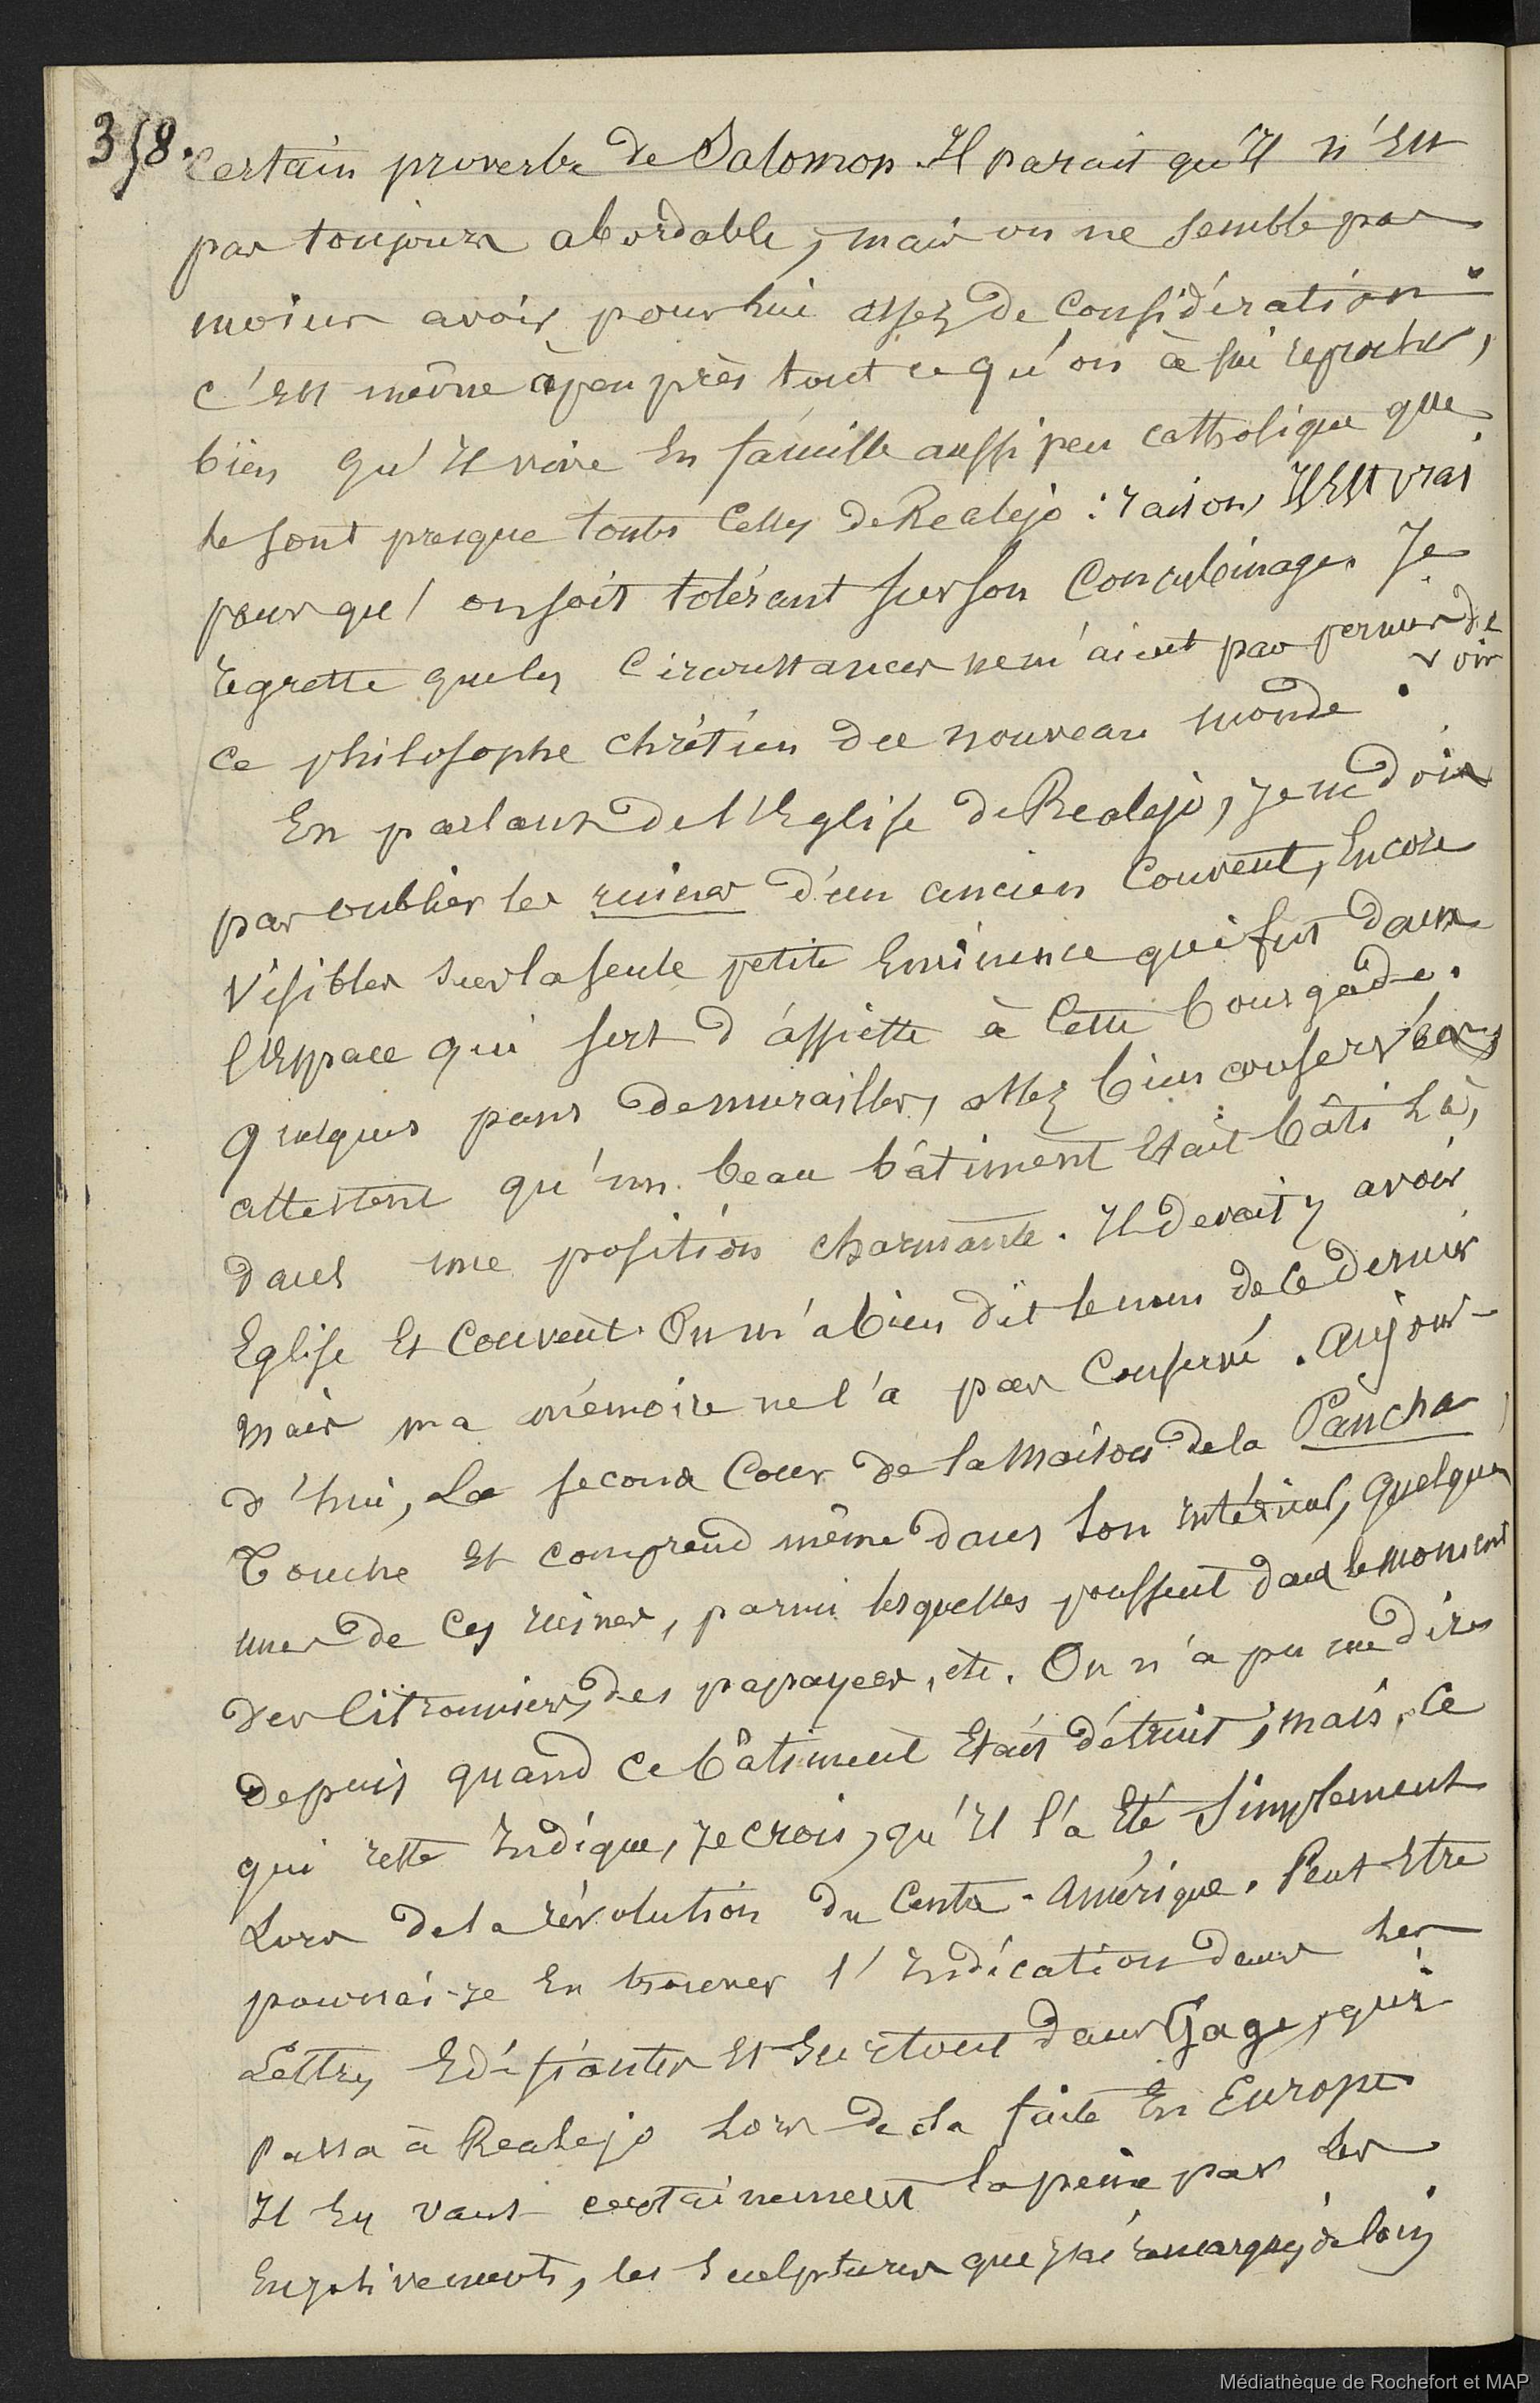 358.
certain proverbe de Salomon. Il parait qu'Il n'Est
pas toujours abordable, mais on ne semble pas
moins avoir pour lui assez de Considération
c'Est même à peu près tout ce qu'on à lui reprocher,
bien qu'Il vive En famille aussi peu catholique que
le sont presque toutes Celles de Realejo : raison, Il Est vrai
pour qu'on soit tolérant sur son Concubinage. Je
regrette que les Circonstances ne m'aient pas permis de
voir
Ce philosophe chrétien du nouveau monde.
En parlant de l'Eglise de Realejo, je ne dois
pas oublier les ruines d'un ancien Couvent, Encore
Visibles sur la seule petite Eminence qui fut dans
l'Espace qui sert d'assiette à Cette bourgade.
Quelques pans de murailles, assez bien conservées
attestent qu'un beau bâtiment Etait bâti Là,
dans une position charmante. Il devait y avoir
Eglise Et Couvent. On m'a bien dit le nom de Ce dernier
mais ma mémoire ne l'a pas Conservé. Aujour-
d'hui, La seconde Cour de la Maison de la Pancha
Touche Et comprend même dans son intérieur, quelques
unes de Ces ruines, parmi lesquelles poussent dans le moment
des Citronniers, des papayers, etc. On n'a pu me dire
depuis quand Ce bâtiment Etait détruit ; mais, Ce
qui reste Indique, je crois, qu'Il l'a Eté simplement
Lors de la révolution du Centre-Amérique. Peut-Etre
pourrai-je En trouver l'Indication dans Les
Lettres Edifiantes Et surtout dans Gage, qui
passa à Realejo Lors de sa fuite En Europe
Il En vaut certainement la peine par Les
, les Sculptures que j'ai remarquées de loin